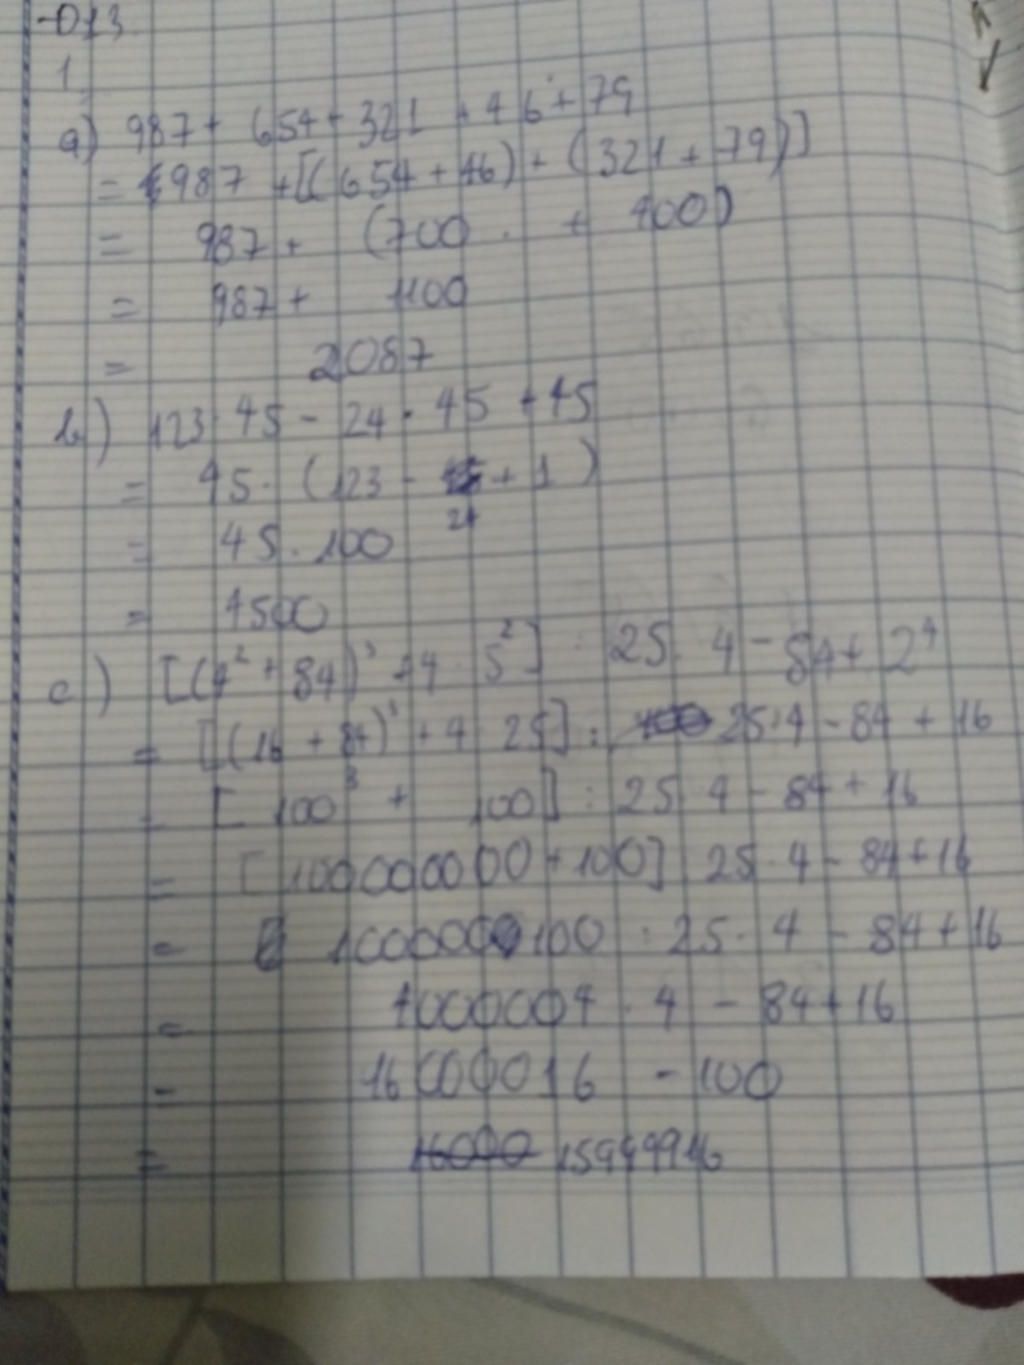 -013.
1
a) 987 + 654 + 321 + 46 + 79
= 987 + [(654 + 46) + (321 + 79)]
= 987 + (700 + 400)
= 987 + 1100
= 2087
b) 123 · 45 - 24 · 45 + 45
= 45 · (123 - 24 + 1)
= 45 . 100
= 4500
c) [(4² + 84)³ + 4 · 5²] : 25 . 4 - 84 + 2⁴
= [(16 + 84)³ + 4 · 25] : 25 · 4 - 84 + 16
= [100³ + 100] : 25 . 4 - 84 + 16
= [100000000 + 100] 25 · 4 - 84 + 16
= 100000100 : 25 · 4 - 84 + 16
= 4000004 . 4 - 84 + 16
= 16000016 - 100
= 15999916